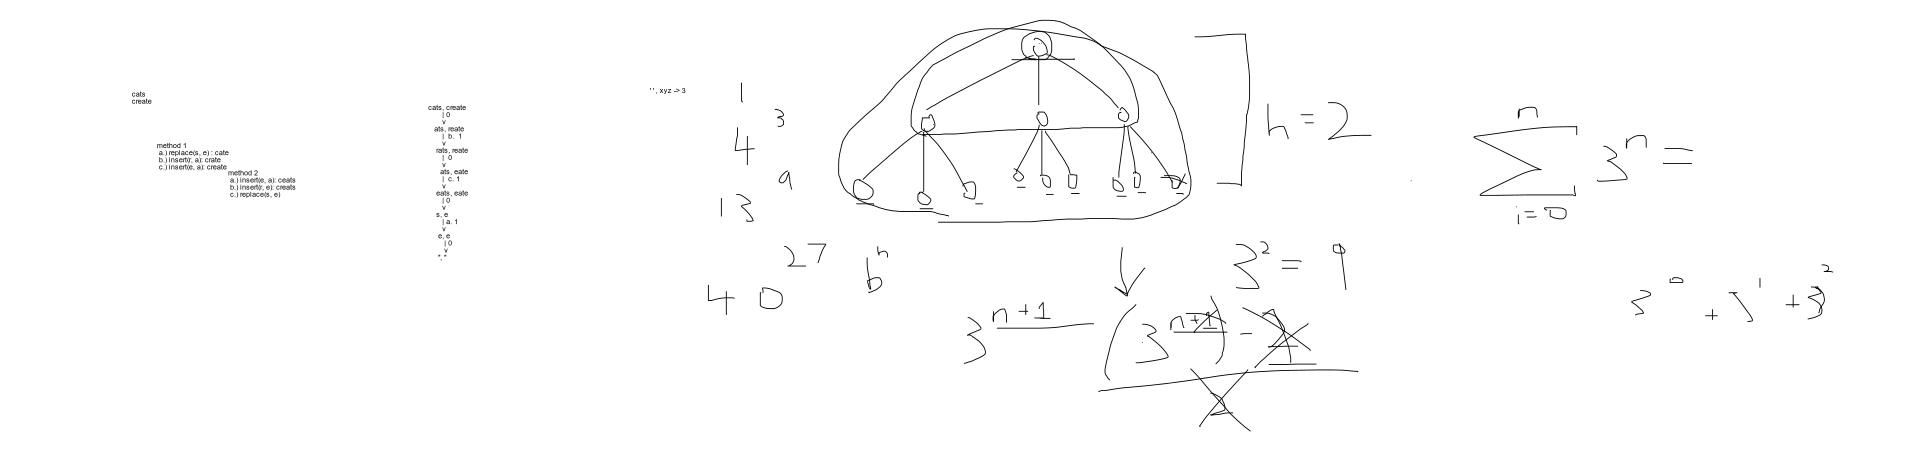 cats
create
method 1
a.) replace(s, e) : cate
b.) insert(r, a): crate
c.) insert(e, a): create
method 2
a.) insert(e, a): ceats
b.) insert(r, e): creats
c.) replace(s, e)
cats, create
| 0
v
ats, reate
| b. 1
v
rats, reate
| 0
v
ats, eate
| c. 1
v
eats, eate
| 0
v
s, e
| a. 1
v
e, e
| 0
v
'','' 
'', xyz -> 3
1
3
4
9
13
27
40
b^h
h = 2
3^2 = 9
3^{n+1}
(3^{n+1}) -
2
n
Σ 3^n =
i=0
3^0 + 3^1 + 3^2